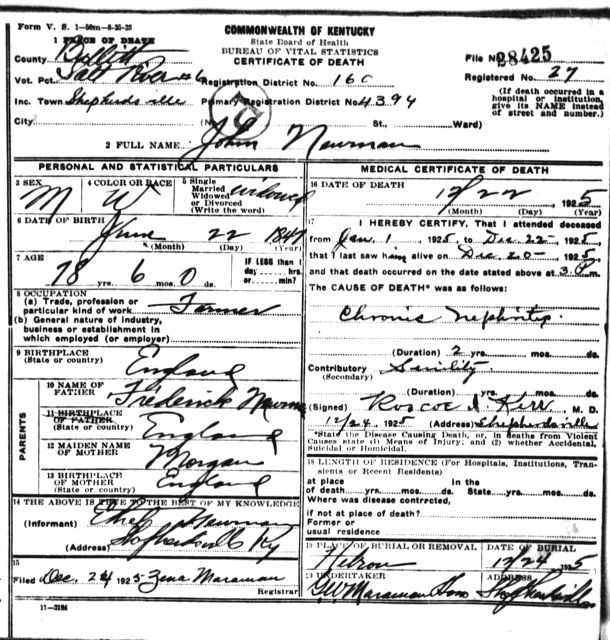 Form V. S. 1—50m—8-25-23
COMMONWEALTH OF KENTUCKY
State Board of Health
BUREAU OF VITAL STATISTICS
CERTIFICATE OF DEATH
1 PLACE OF DEATH
County Bullitt
File No. 28425
Vot. Pct. Salt River #6 Registration District No. 16C
Registered No. 27
Inc. Town Shepherdsville Primary Registration District No. 4394
(If death occurred in a hospital or institution, give its NAME instead of street and number.)
City No. St., Ward)
2 FULL NAME John Newman
PERSONAL AND STATISTICAL PARTICULARS
3 SEX M
4 COLOR OR RACE W
5 Single Married Widowed or Divorced (Write the word) widowed
6 DATE OF BIRTH June 22 1847
(Month) (Day) (Year)
7 AGE 78 yrs. 6 mos. 0 ds.
IF LESS than 1 day hrs. or min.?
8 OCCUPATION
(a) Trade, profession or particular kind of work Farmer
(b) General nature of industry, business or establishment in which employed (or employer)
9 BIRTHPLACE (State or country) England
PARENTS
10 NAME OF FATHER Frederick Newman
11 BIRTHPLACE OF FATHER (State or country) England
12 MAIDEN NAME OF MOTHER Morgan
13 BIRTHPLACE OF MOTHER (State or country) England
14 THE ABOVE IS TRUE TO THE BEST OF MY KNOWLEDGE
(Informant) Newman
(Address) Shepherdsville Ky
15
Filed Dec. 24 1925 Zena Maraman
Registrar
11—3184
MEDICAL CERTIFICATE OF DEATH
16 DATE OF DEATH 12/22 1925
(Month) (Day) (Year)
17 I HEREBY CERTIFY, That I attended deceased
from Jan. 1, 1925, to Dec-22-, 1925
that I last saw him alive on Dec-20-, 1925,
and that death occurred on the date stated above at 3 P m.
The CAUSE OF DEATH* was as follows:
Chronic Nephritis
(Duration) 2 yrs. mos. ds.
Contributory Senility
(Secondary)
(Duration) yrs. mos. ds.
(Signed) Roscoe I Kerr, M. D.
12/24 1925 (Address) Shepherdsville
*State the Disease Causing Death, or, in deaths from Violent Causes state (1) Means of Injury; and (2) whether Accidental, Suicidal or Homicidal.
18 LENGTH OF RESIDENCE (For Hospitals, Institutions, Transients or Recent Residents)
at place of death yrs. mos. ds. In the State yrs. mos. ds.
Where was disease contrected,
if not at place of death?
Former or usual residence
19 PLACE OF BURIAL OR REMOVAL Hebron
DATE OF BURIAL 12/24 1925
20 UNDERTAKER GW Maraman Sons
ADDRESS Shepherdsville